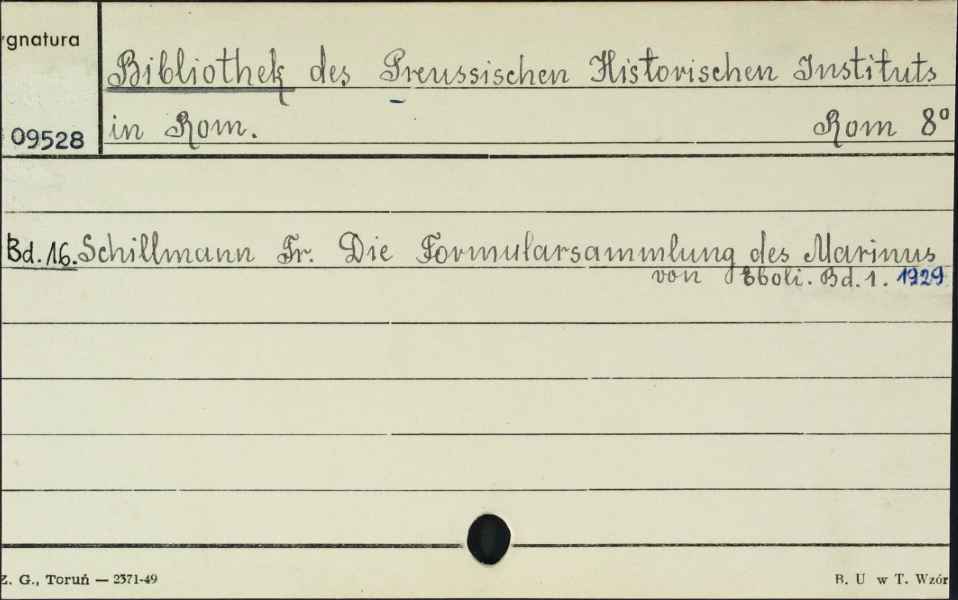 ygnatura
09528
Bibliothek des Preussischen Historischen Instituts
in Rom. Rom 8º
Bd. 16. Schillmann Fr. Die Formularsammlung des Marinus
von Eboli. Bd. 1. 1929
Z. G., Toruń — 2371-49
B. U w T. Wzór